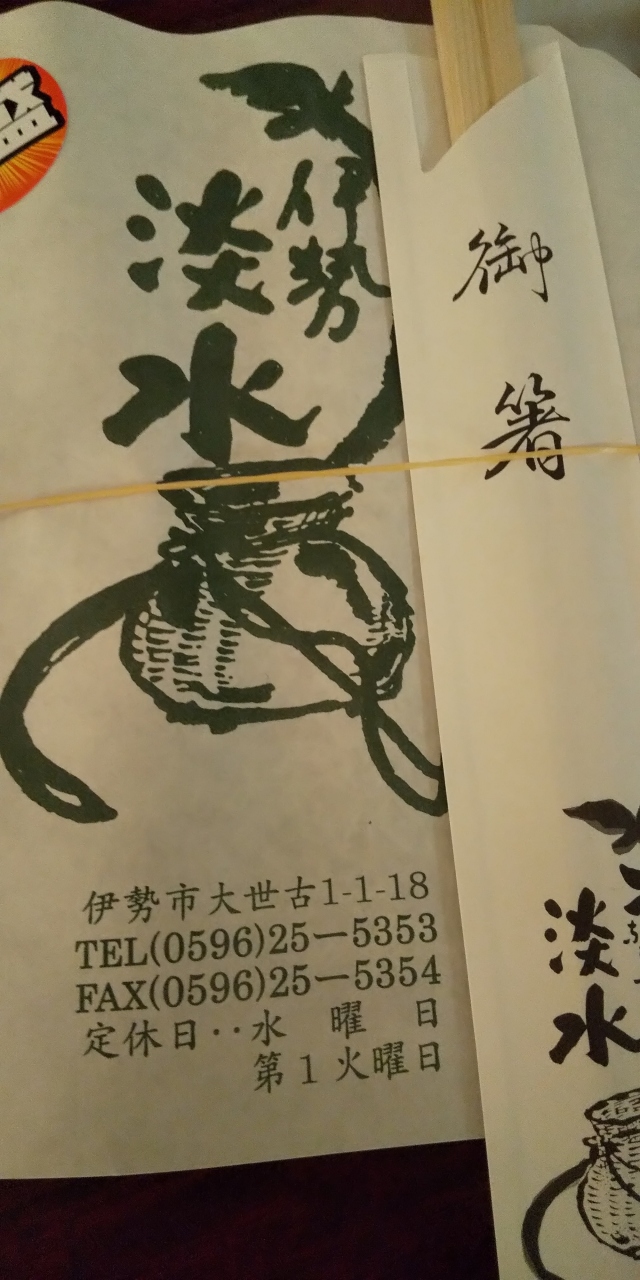 盛
伊勢
淡水
伊勢市大世古1-1-18
TEL(0596)25ー5353
FAX(0596)25ー5354
定休日‥水 曜 日
第1火曜日
御箸
淡水